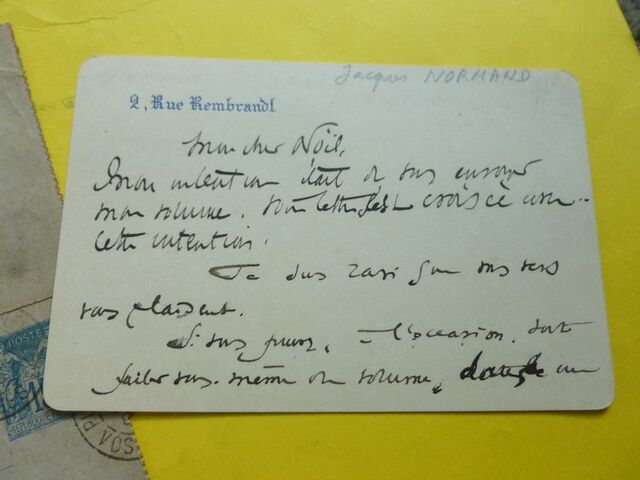 Jacques NORMAND
2, Rue Rembrandt
Mon cher Noël,
Mon intention était de vous envoyer
mon volume. Votre lettre s'est croisée avec
cette intention.
Je suis ravi que mes vers
vous plaisent.
Si vous pouvez, à l'occasion, dire
parler vous-même du volume, dans un
POSTES
RÉPUBLIQUE